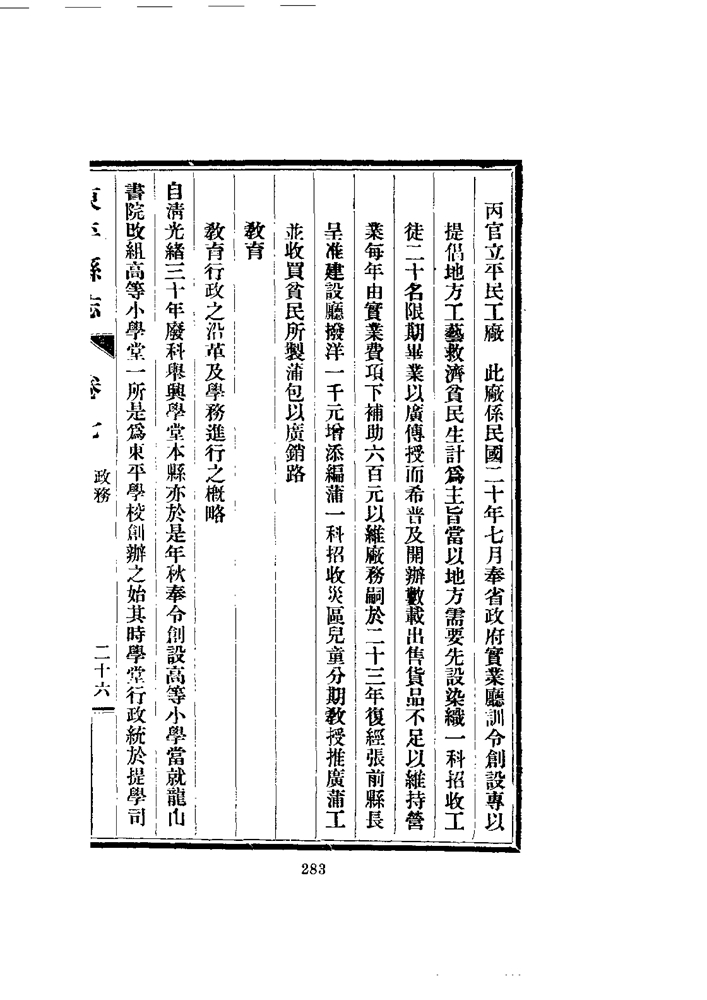 丙官立平民工廠　此廠係民國二十年七月奉省政府實業廳訓令創設專以
提倡地方工藝救濟貧民生計爲主旨當以地方需要先設染織一科招收工
徒二十名限期畢業以廣傳授而希普及開辦數載出售貨品不足以維持營
業每年由實業費項下補助六百元以維廠務嗣於二十三年復經張前縣長
呈准建設廳撥洋一千元增添編蒲一科招收災區兒童分期教授推廣蒲工
並收買貧民所製蒲包以廣銷路
教育
教育行政之沿革及學務進行之概略
自清光緒三十年廢科舉興學堂本縣亦於是年秋奉令創設高等小學當就龍山
書院改組高等小學堂一所是爲東平學校創辦之始其時學堂行政統於提學司
東平縣志　卷七　政務　二十六
283